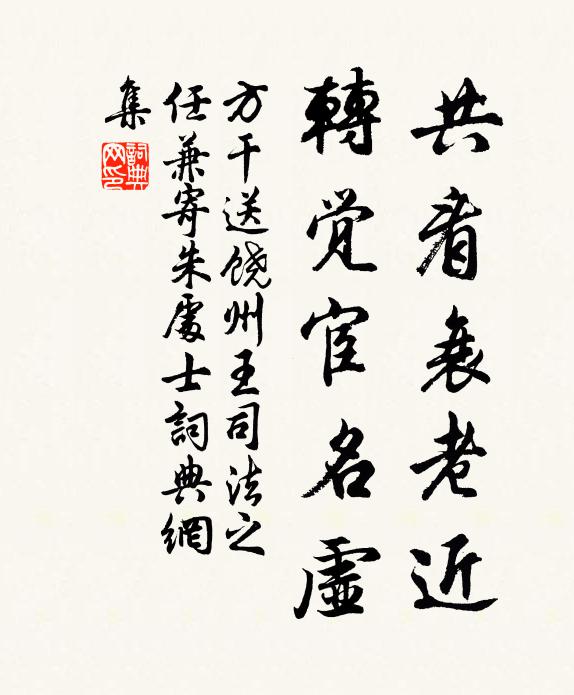 共看衰老近
轉觉宦名虛
方干送饒州王司法之
任兼寄朱處士詞典網
集
詞典
网印